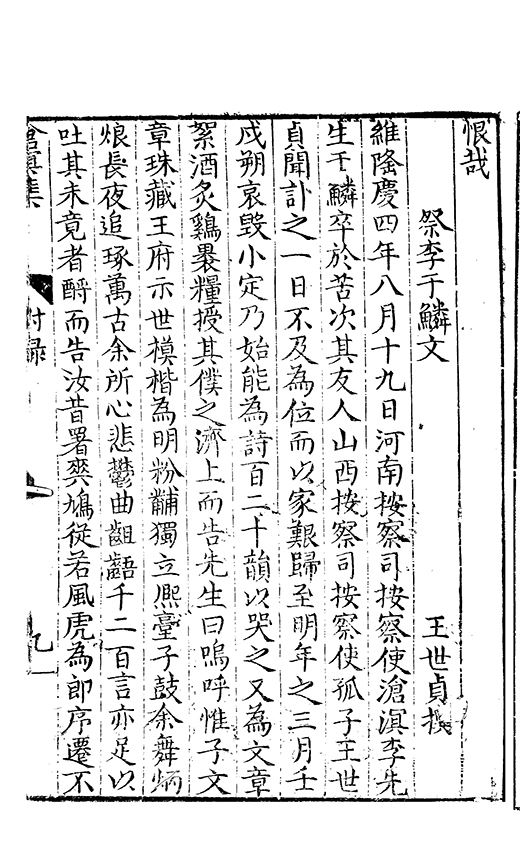 恨哉
祭李于鱗文 王世貞撰
維隆慶四年八月十九日河南按察司按察使滄溟李先
生于鱗卒於苦次其友人山西按察司按察使孤子王世
貞聞訃之一日不及為位而以家艱歸至明年之三月壬
戌朔哀毀小定乃始能為詩百二十韻以哭之又為文章
絮酒炙鷄褁糧授其僕之濟上而告先生曰嗚呼惟子文
章珠藏王府示世模楷為明粉黼獨立熈臺子鼓余舞炳
烺長夜追琢萬古余所心悲鬱曲齟齬千二百言亦足以
吐其未竟者酹而告汝昔署爽鳩從若風虎為郎序遷不
滄溟集 附録